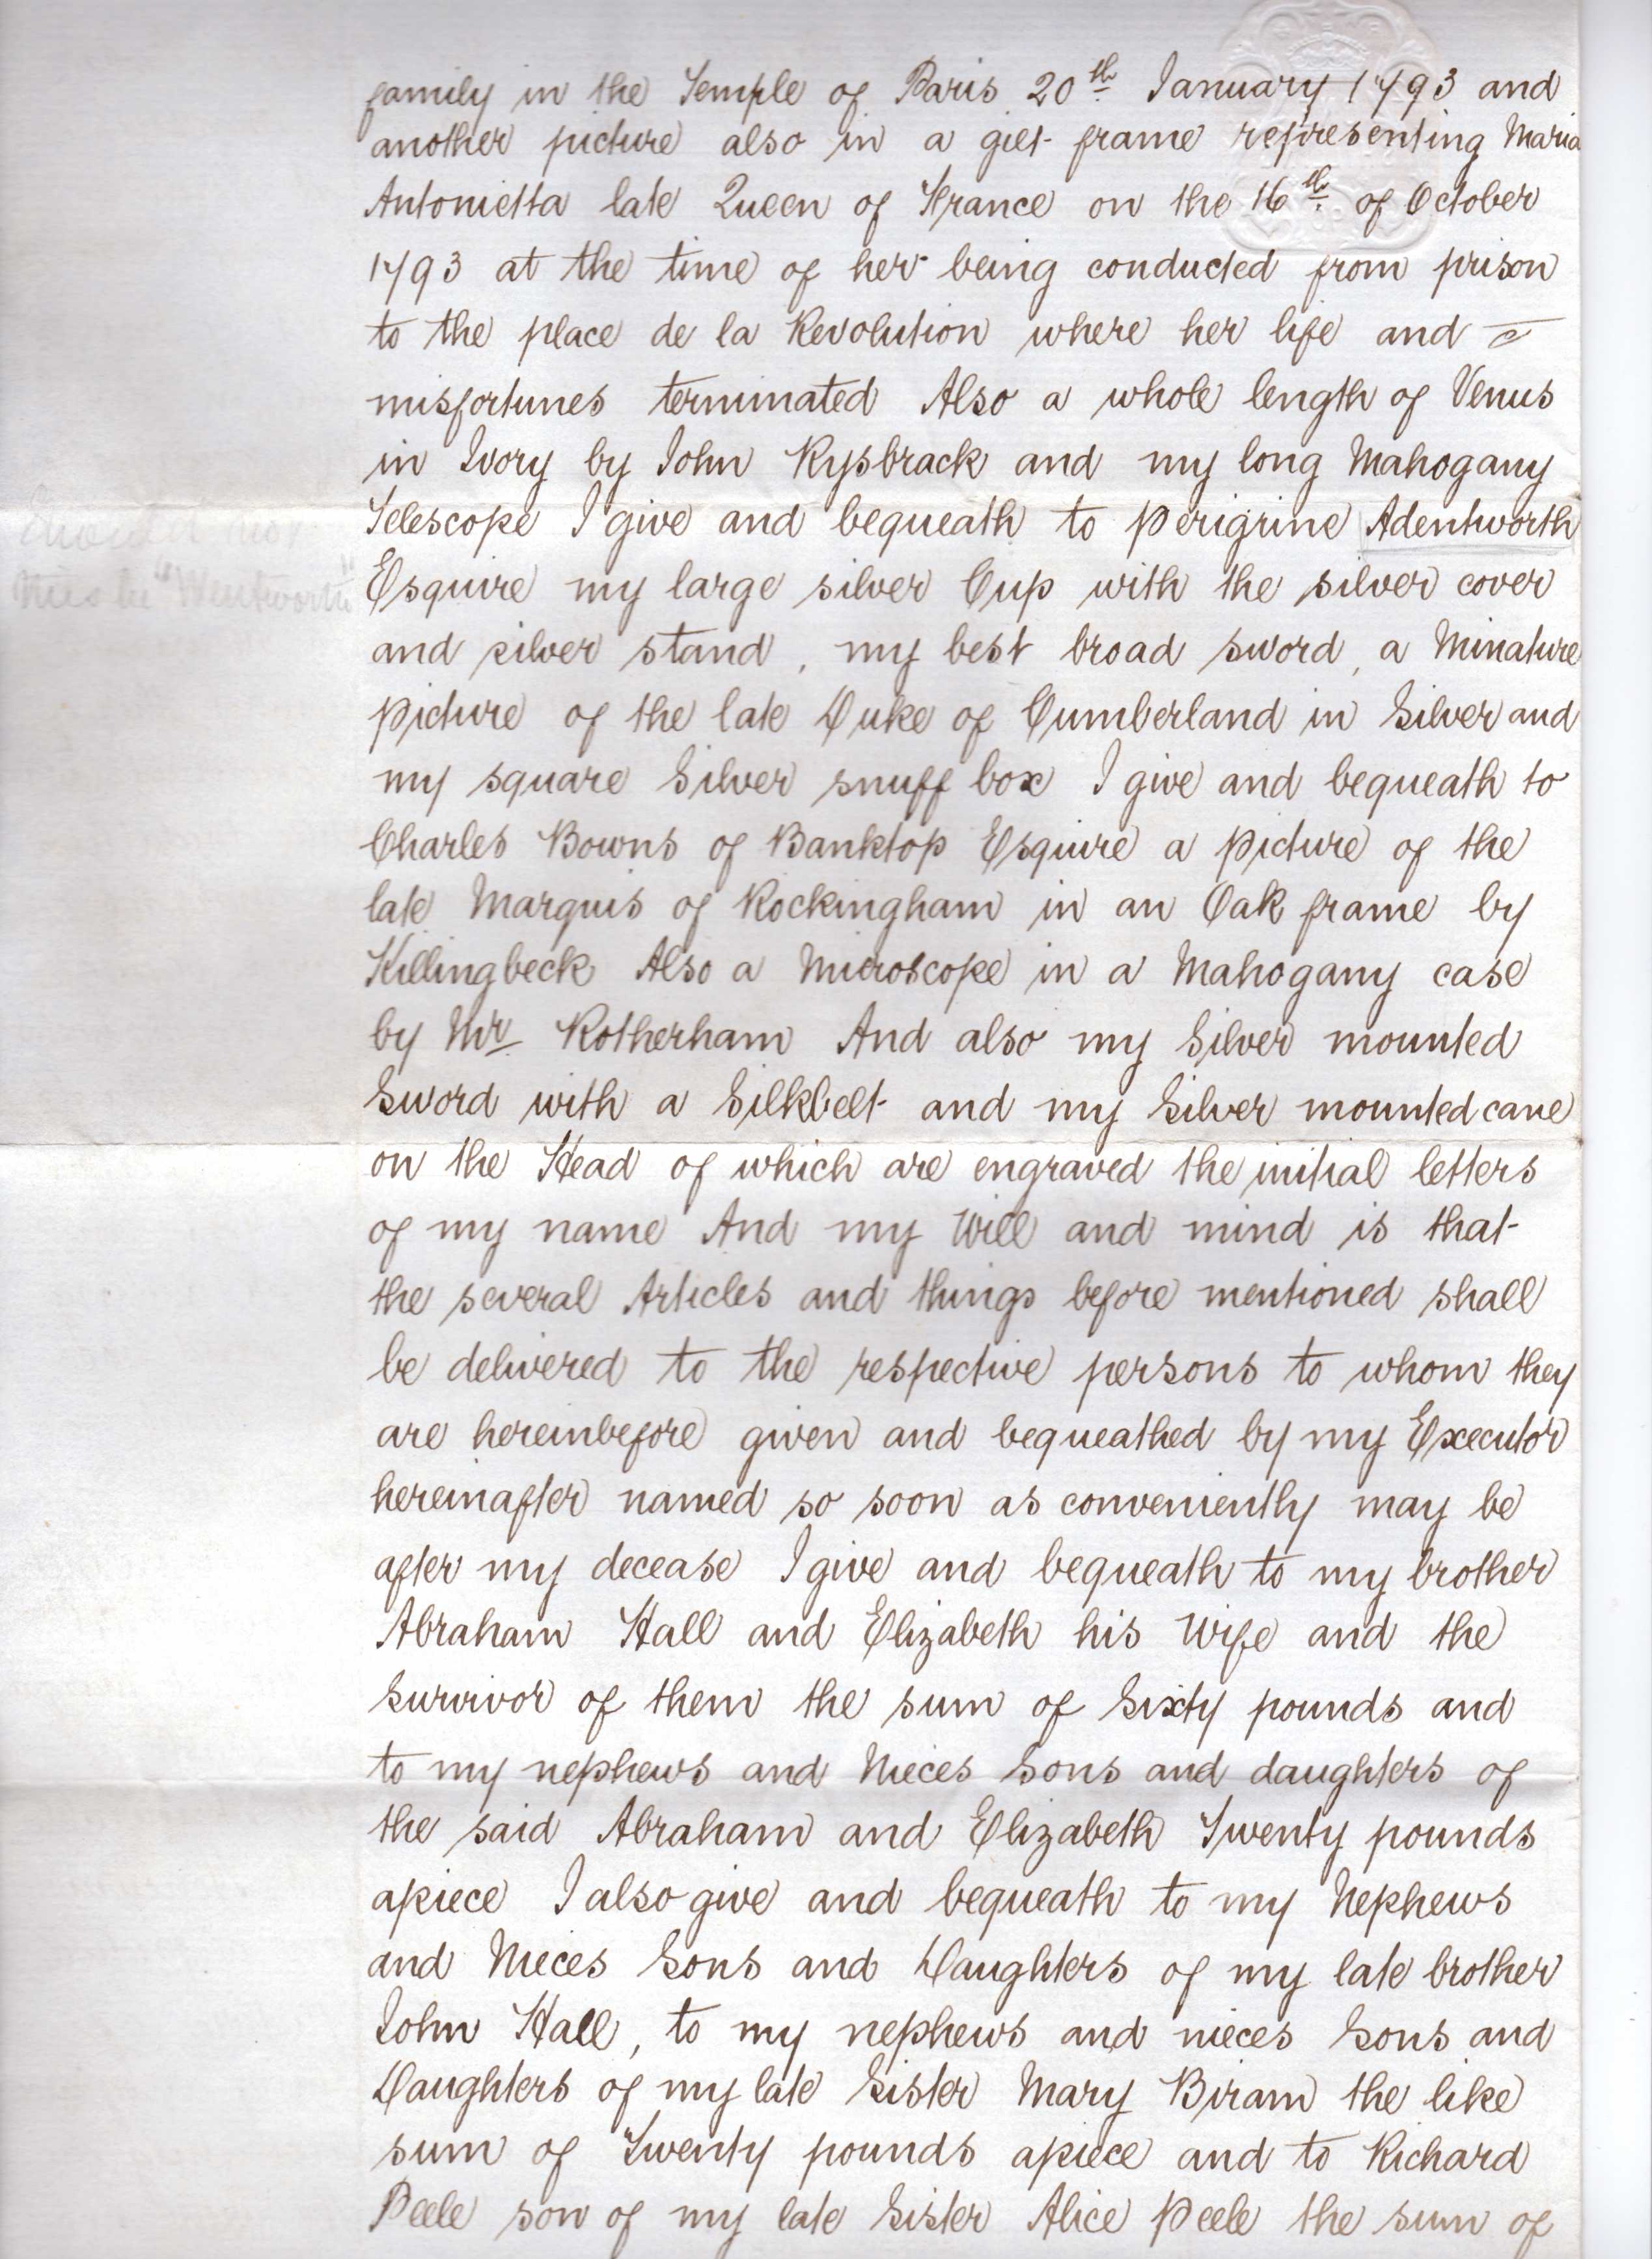 family in the Temple of Paris 20th January 1793 and
another picture also in a gilt frame representing Maria
Antonietta late Queen of France on the 16th of October
1793 at the time of her being conducted from prison
to the place de la Revolution where her life and
misfortunes terminated Also a whole length of Venus
in Ivory by John Rysbrack and my long Mahogany
Telescope I give and bequeath to Perigrine Adentworth
must be "Wentworth"
Esquire my large silver Cup with the silver cover
and silver stand, my best broad sword, a Minature
picture of the late Duke of Cumberland in Silver and
my square Silver snuff box I give and bequeath to
Charles Bowns of Banktop Esquire a picture of the
late Marquis of Rockingham in an Oak frame by
Killingbeck Also a Microscope in a Mahogany case
by Mr Rotherham And also my Silver mounted
Sword with a Silkbelt and my Silver mounted cane
on the Head of which are engraved the initial letters
of my name And my Will and mind is that
the several Articles and things before mentioned shall
be delivered to the respective persons to whom they
are hereinbefore given and bequeathed by my Executor
hereinafter named so soon as conveniently may be
after my decease I give and bequeath to my brother
Abraham Hall and Elizabeth his Wife and the
Survivor of them the sum of Sixty pounds and
to my nephews and Nieces Sons and daughters of
the said Abraham and Elizabeth Twenty pounds
apiece I also give and bequeath to my Nephews
and Nieces Sons and Daughters of my late brother
John Hall, to my nephews and nieces Sons and
Daughters of my late Sister Mary Biram the like
sum of Twenty pounds apiece and to Richard
Peele son of my late Sister Alice Peele the sum of